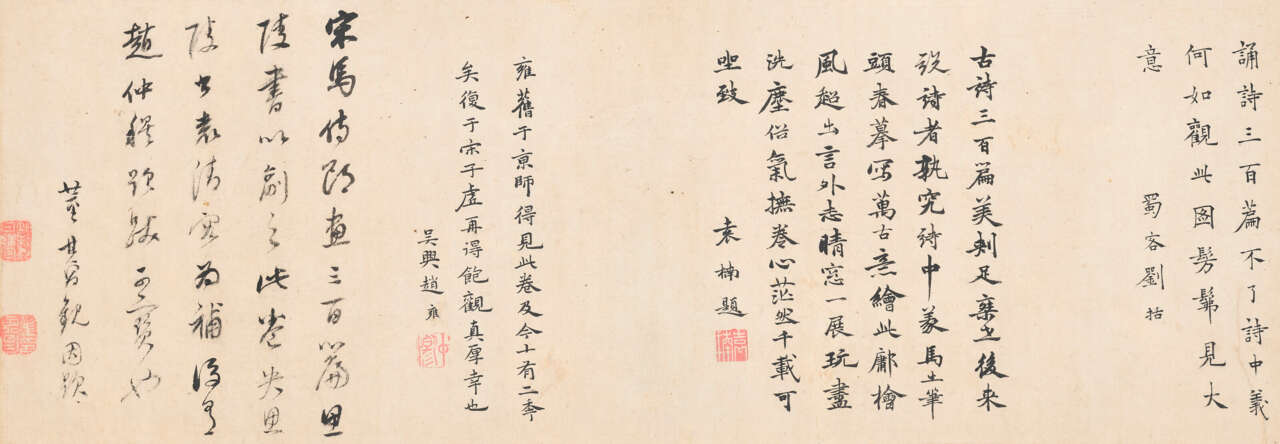 誦詩三百篇不了詩中義
何如觀此圖髣髴見大
意
蜀客劉
古詩三百篇美刺足棄世後來
說詩者孰究詩中義馬生筆
頭春摹寫萬古意繪此鄘檜
風超出言外志晴窓一展玩盡
洗塵俗氣撫卷心茫然千載可
坐致
袁楠題
雍舊于京師得見此卷及今十有二季
矣復于宋子虛再得飽觀真厚幸也
吳興趙雍
宋馬侍郎畫三百篇思
陵書以劍之此卷失思
陵書袁清容為補後有
趙仲穆題跋可寶也
董其昌觀因題